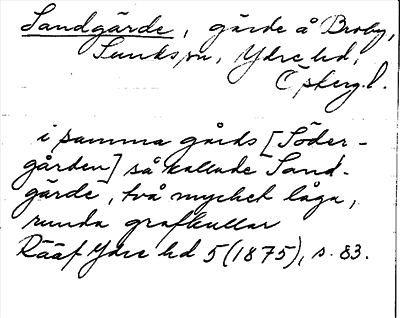 Sandgärde, gärde å Broby,
Sunds sn, Ydre hd,
Östergl.
i samma gårds [Söder-
gården] så kallade Sand-
gärde, två mycket låga,
runda grafkullar
Rääf Ydre hd 5 (1875), s. 83.